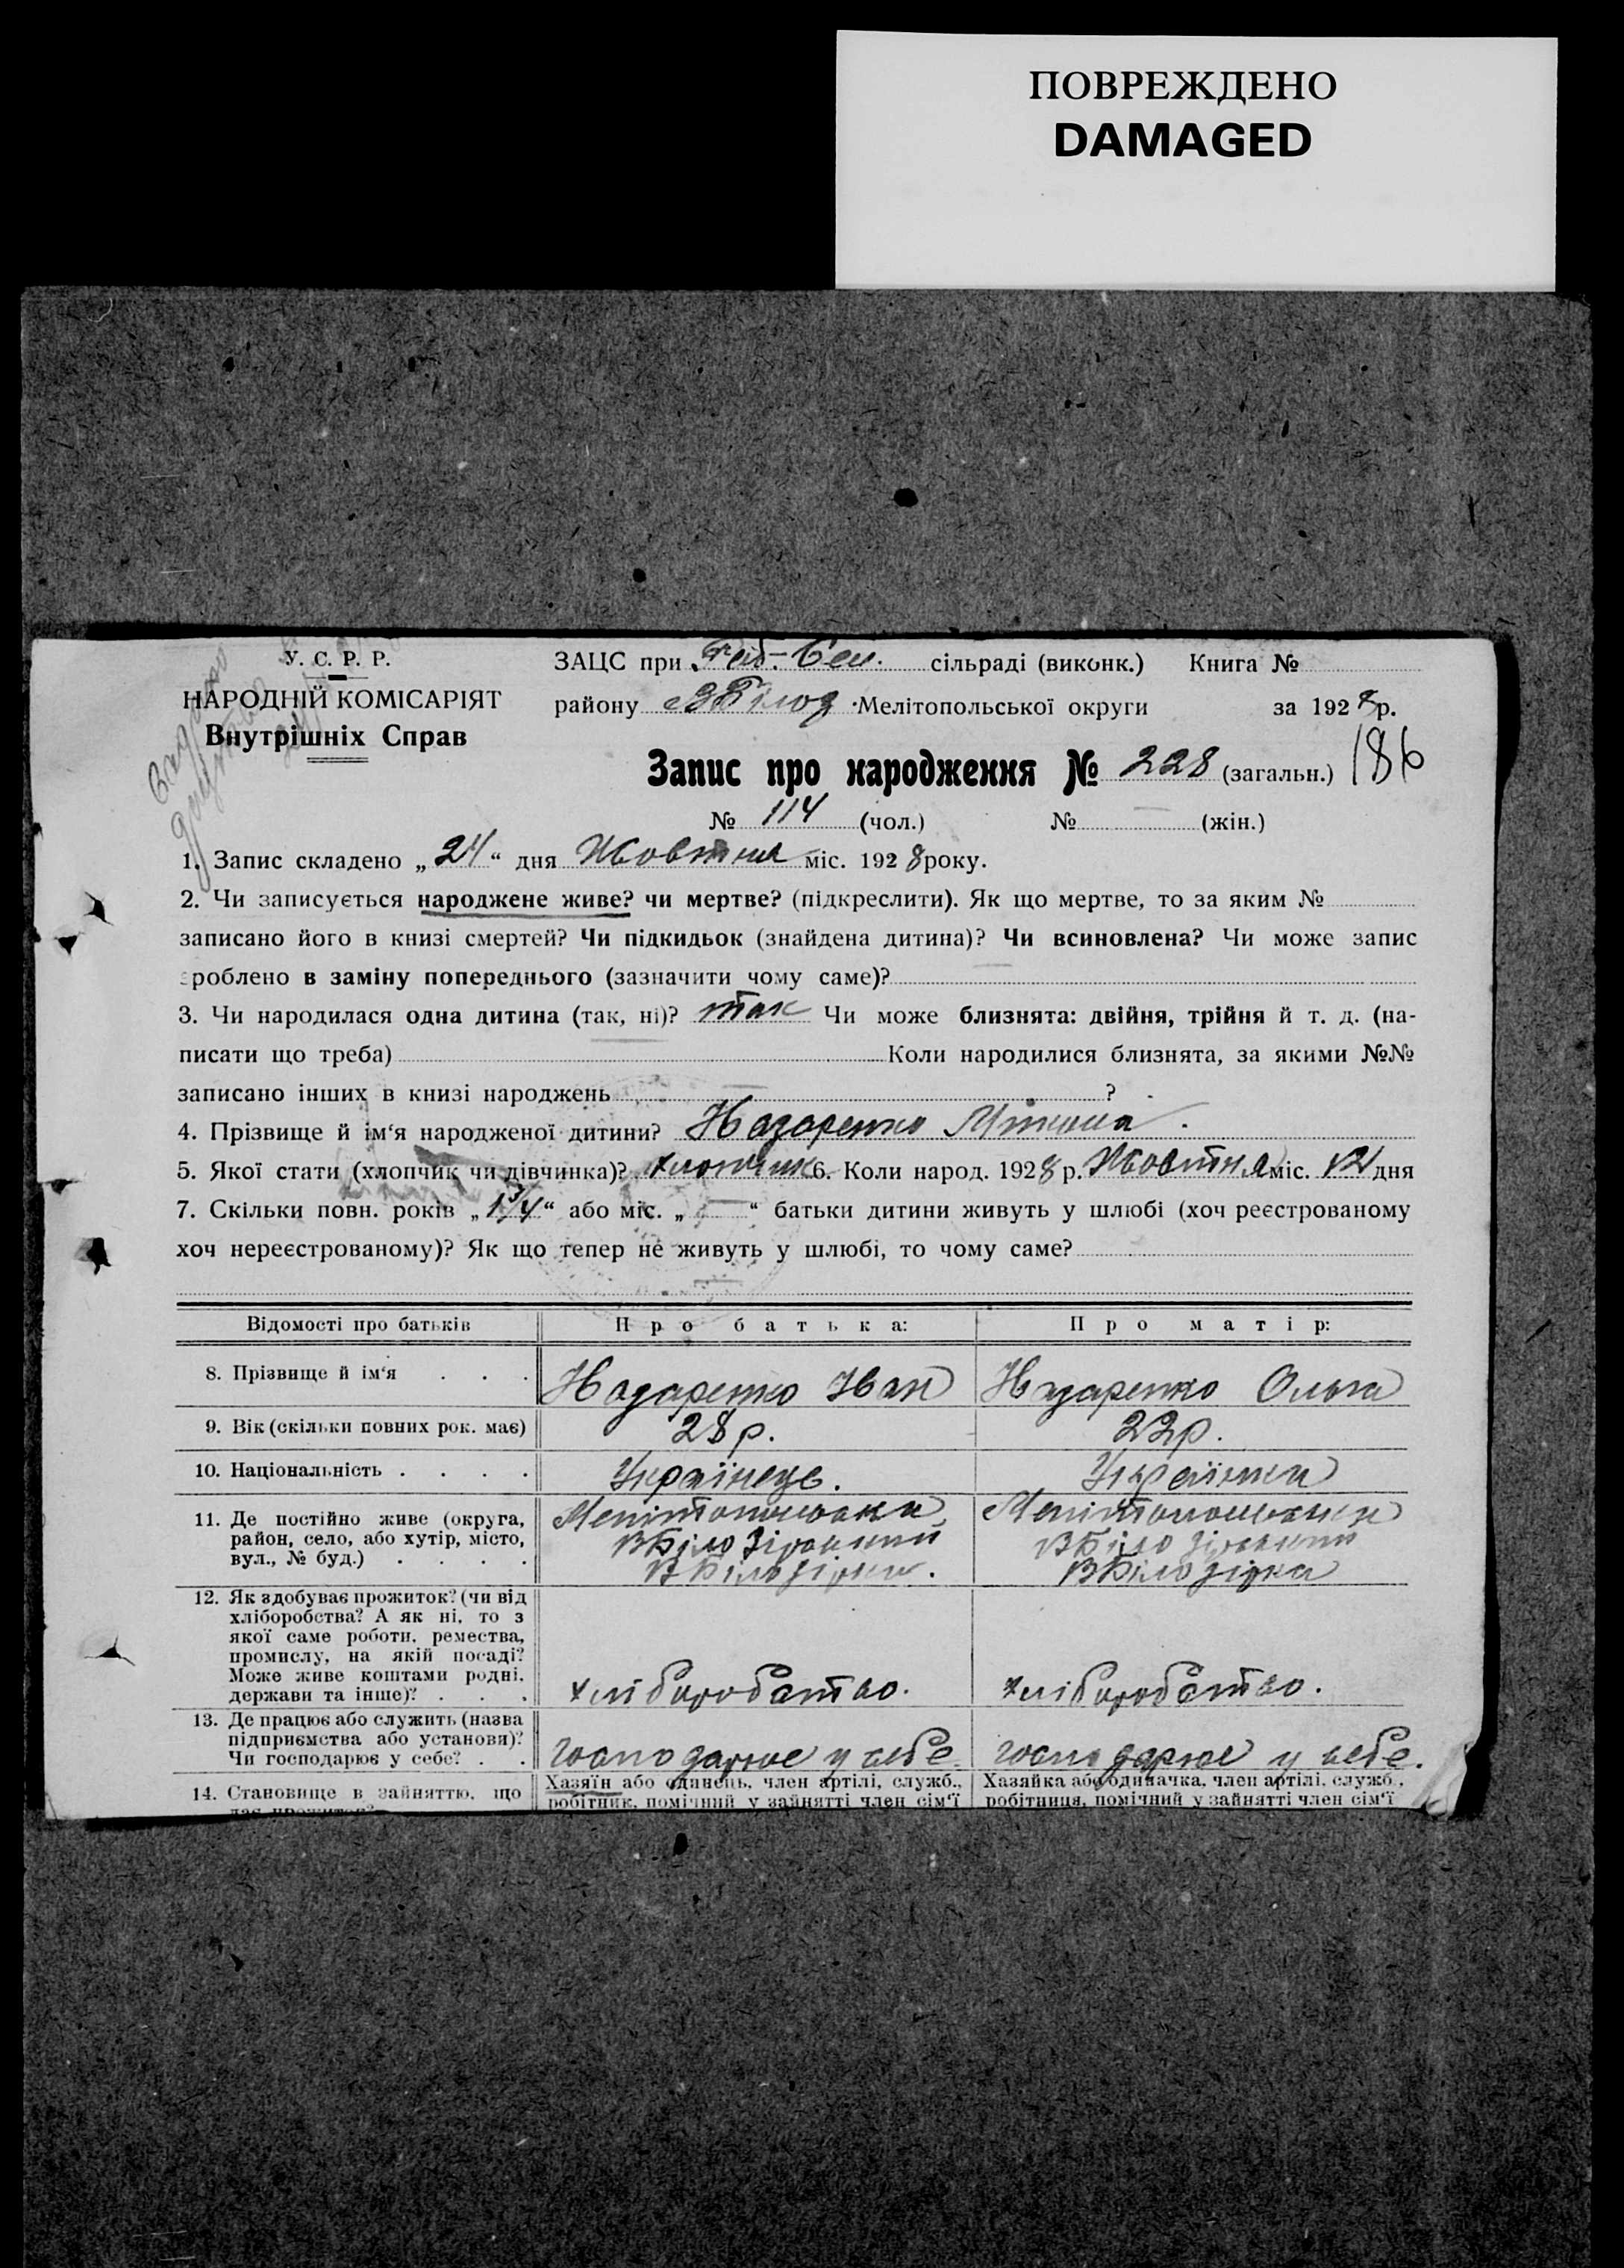 ПОВРЕЖДЕНО
DAMAGED
У. С. Р. Р.
НАРОДНІЙ КОМІСАРІЯТ
Внутрішніх Справ
ЗАЦС при сільраді (виконк.) Книга №
району Мелітопольської округи за 1928 р.
Запис про народження № 228 (загальн.) 186
№ 114 (чол.) № — (жін.)
1. Запис складено „24“ дня Жовтня міс. 1928 року.
2. Чи записується народжене живе? чи мертве? (підкреслити). Як що мертве, то за яким №
записано його в книзі смертей? Чи підкидьок (знайдена дитина)? Чи всиновлена? Чи може запис
зроблено в заміну попереднього (зазначити чому саме)?
3. Чи народилася одна дитина (так, ні)? так Чи може близнята: двійня, трійня й т. д. (на-
писати що треба) Коли народилися близнята, за якими №№
записано інших в книзі народжень — ?
4. Прізвище й ім‘я народженої дитини? Назаренко
5. Якої стати (хлопчик чи дівчинка)? хлопчик 6. Коли народ. 1928 р. Жовтня міс. дня
7. Скільки повн. років „1 3/4“ або міс. „—“ батьки дитини живуть у шлюбі (хоч реєстрованому
хоч нереєстрованому)? Як що тепер не живуть у шлюбі, то чому саме?
Відомості про батьків Про батька: Про матір:
8. Прізвище й ім‘я . . . Назаренко Іван Назаренко Ольга
9. Вік (скільки повних рок. має) 28 р. 22 р.
10. Національність . . . . Українець. Українка
11. Де постійно живе (округа, район, село, або хутір, місто, вул., № буд.) . . . .
Мелітопольська Мелітопольська
В Білозірський В Білозірський
В Білозірка. В Білозірка
12. Як здобуває прожиток? (чи від
хліборобства? А як ні, то з
якої саме роботи, ремества,
промислу, на якій посаді?
Може живе коштами родні,
держави та інше)? . . . хліборобство. хліборобство.
13. Де працює або служить (назва
підприємства або установи)?
Чи господарює у себе? . . господарює у себе. господарює у себе.
14. Становище в зайняттю, що Хазяїн або одинець, член артілі, служб., Хазяйка або одиначка, член артілі, служб.,
дає прожиток? робітник, помічний у зайнятті член сім‘ї робітниця, помічний у зайнятті член сім‘ї